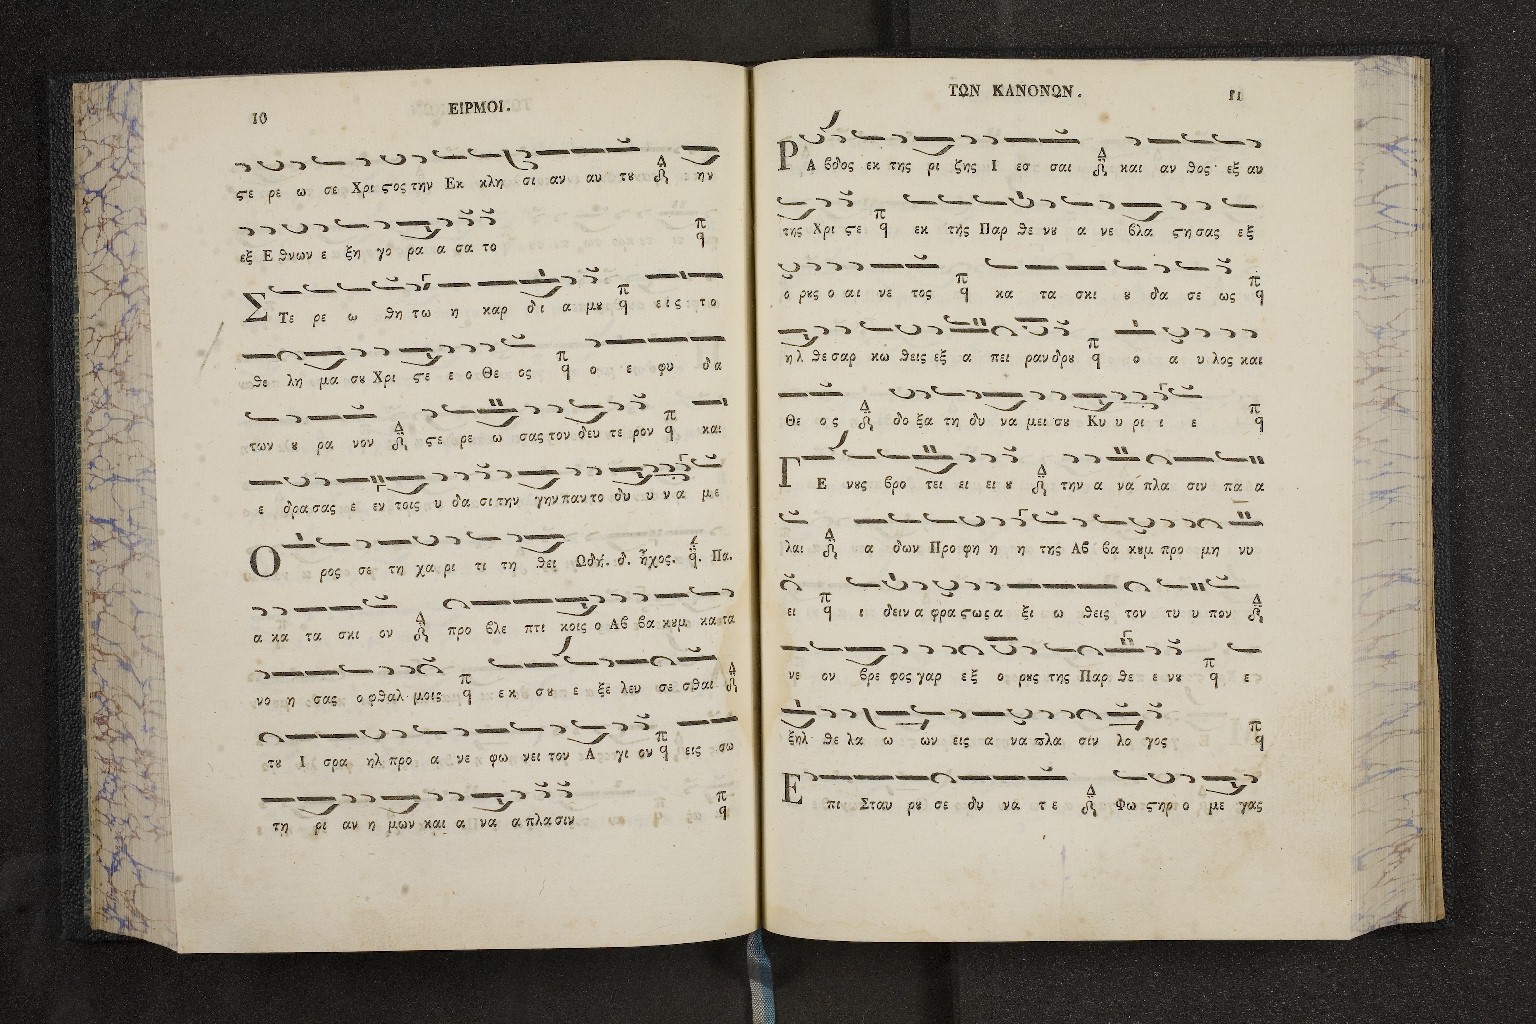 10
ΕΙΡΜΟΙ.
ϛε ρε ω σε Χρι ϛος την Εκ κλη σι αν αυ τȣ ην
εξ Ε θνων ε ξη γο ρα α σα το
Στε ρε ω θη τω η καρ δι α μȣ εις το
θε λη μα σȣ Χρι ϛε ε ο Θε ος ο ε φυ δα
των ȣ ρα νον ϛε ρε ω σας τον δευ τε ρον και
ε δρα σας ε εν τοις υ δα σι την γην παν το δυ υ να με
Ο ρος σε τη χα ρι τι τη θει Ωδή. δ. ἦχος. Πα.
α κα τα σκι ον προ βλε πτι κοις ο Αβ βα κȣμ κα τα
νο η σας ο φθαλ μοις εκ σȣ ε ξε λευ σε σθαι
τȣ Ι σρα ηλ προ α νε φω νει τον Α γι ον εις σω
τη ρι αν η μων και α να α πλα σιν
ΤΩΝ ΚΑΝΟΝΩΝ.
11
ΡΑ βδος εκ της ρι ζης Ι εσ σαι και αν θος εξ αυ
της Χρι ϛε εκ της Παρ θε νȣ α νε βλα ϛη σας εξ
ο ρȣς ο αι νε τος κα τα σκι ȣ δα σε ως
ηλ θε σαρ κω θεις εξ α πει ραν δρȣ ο α υ λος και
Θε ος δο ξα τη δυ να μει σȣ Κυ υ ρι ι ε
ΓΕ νȣς βρο τει ει ει ȣ την α να πλα σιν πα α
λαι α δων Προ φη η η της Αβ βα κȣμ προ μη νυ
ει ι δειν α φρα ϛως α ξι ω θεις τον τυ υ πον
νε ον βρε φος γαρ εξ ο ρȣς της Παρ θε ε νȣ ε
ξηλ θε λα ω ων εις α να πλα σιν λο γος
Ε πι Σταυ ρȣ σε δυ να τε Φω ϛηρ ο με γας